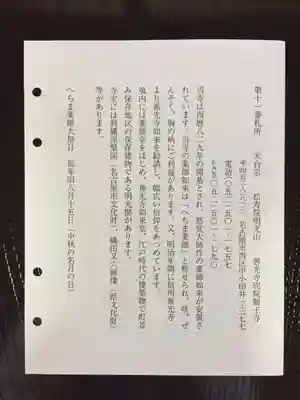 第十一番札所　天台宗　松青院明光山　善光寺別院願王寺
〒四五二‐八二二　名古屋市西区中小田井一‐三七七
電話〇五二‐五〇一‐一七五七
FAX〇五二‐五〇一‐一七九〇
当寺は西暦八二九年の開基とされ、慈覚大師作の薬師如来が安置さ
れています。当寺の薬師如来は「へちま薬師」と称せられ、咳、ぜ
んそく、胸の病にご利益があります。又、明治年間に信州善光寺
より善光寺如来を勧請し、幅広い信仰をあつめています。
境内には薬師堂をはじめ、善光寺如来堂、江戸時代の建築物で町並
み保存地区の保存建物である明光閣があります。
寺宝には刺繍涅槃図（名古屋市文化財）、織田又六画像（県文化財）
等があります。
へちま薬師大祭日　毎年旧八月十五日（中秋の名月の日）